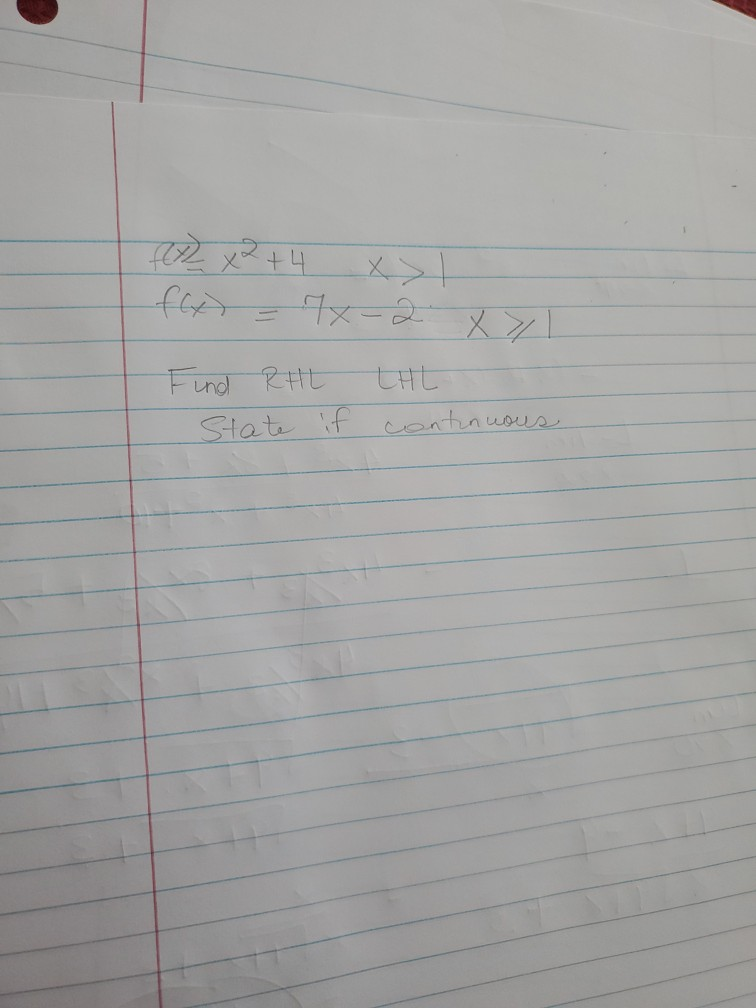 f(x) = x² + 4 x > 1
f(x) = 7x - 2 x ⩾ 1
Find RHL LHL
State if continuous